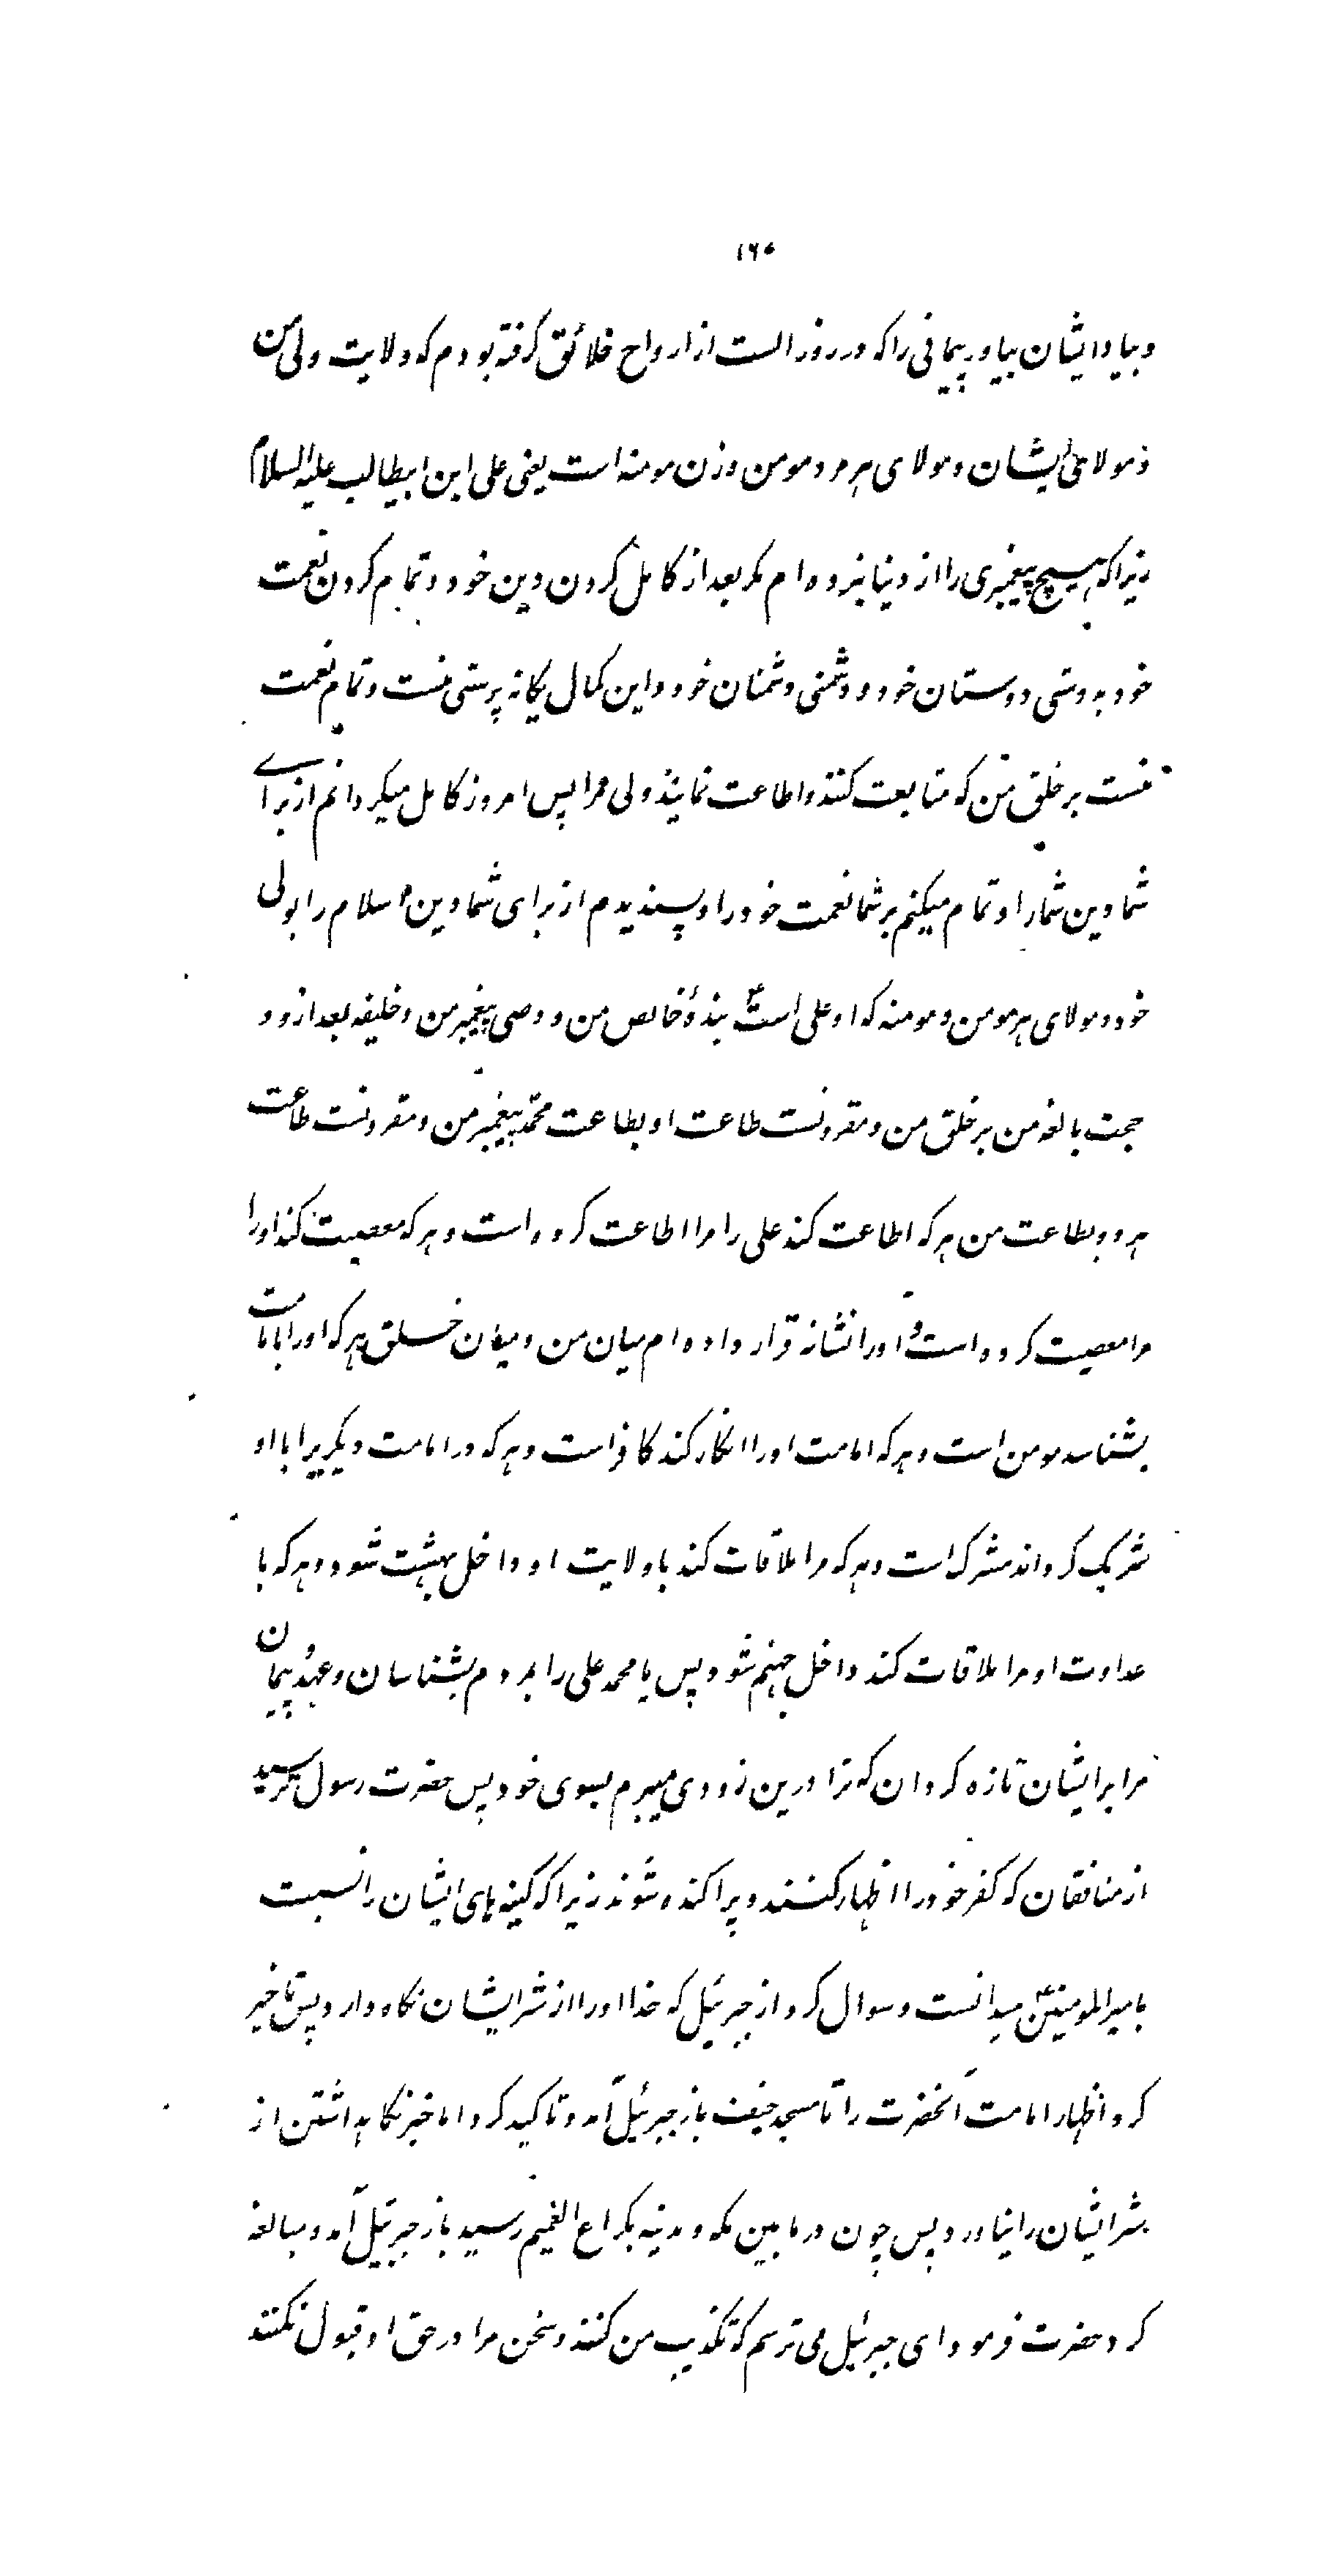 ۱۶۵
و بیاد ایشان بیاور پیمانی را که در روز الست از ارواح خلائق گرفته بودم که ولایت ولی من
و مولای ایشان و مولای هر مرد مومن و زن مومنه است یعنی علی ابن ابیطالب علیه السلام
زیرا که هیچ پیغمبری را از دنیا نبرده ام مگر بعد از کامل کردن دین خود و تمام کردن نعمت
خود بدوستی دوستان خود و دشمنی دشمنان خود و این کمال یگانه پرستی منست و تمام نعمت
منست بر خلق من که متابعت کنند و اطاعت نمایند ولی مرا پس امروز کامل میگردانم از برای
شما دین شما را و تمام میکنم بر شما نعمت خود را و پسندیدم از برای شما دین اسلام را بولی
خود و مولای هر مومن و مومنه که او علی است بندهٔ خالص من و وصی پیغمبر من و خلیفه بعد از و و
حجت بالغه من بر خلق من و مقرونست طاعت او بطاعت محمد پیغمبر من و مقرونست طاعت
هر دو بطاعت من هر که اطاعت کند علی را مرا اطاعت کرده است و هر که معصیت کند او را
مرا معصیت کرده است و او را نشانه قرار داده ام میان من و میان خلق هر که او را بامامت
بشناسد مومن است و هر که امامت او را انکار کند کافر است و هر که در امامت دیگریرا با او
شریک گرداند مشرک است و هر که مرا ملاقات کند با ولایت او داخل بهشت شود و هر که با
عداوت او مرا ملاقات کند داخل جهنم شود پس یا محمد علی را بمردم بشناسان و عهد و پیمان
مرا بر ایشان تازه گردان که ترا درین زودی میبرم بسوی خود پس حضرت رسول ترسید
از منافقان که کفر خود را اظهار کنند و پراکنده شوند زیرا که کینه های ایشان را نسبت
بامیر المومنین ع میدانست و سوال کرد از جبرئیل که خدا او را از شر ایشان نگاه دارد پس تاخیر
کرد اظهار امامت آنحضرت را تا مسجد خیف باز جبرئیل آمد و تاکید کرد اما خبر نگاهداشتن از
شر ایشان را نیاورد پس چون در مابین مکه و مدینه بکراع الغمیم رسید باز جبرئیل آمد و مبالغه
کرد حضرت فرمود ای جبرئیل می ترسم که تکذیب من کنند و سخن مرا در حق او قبول نکنند